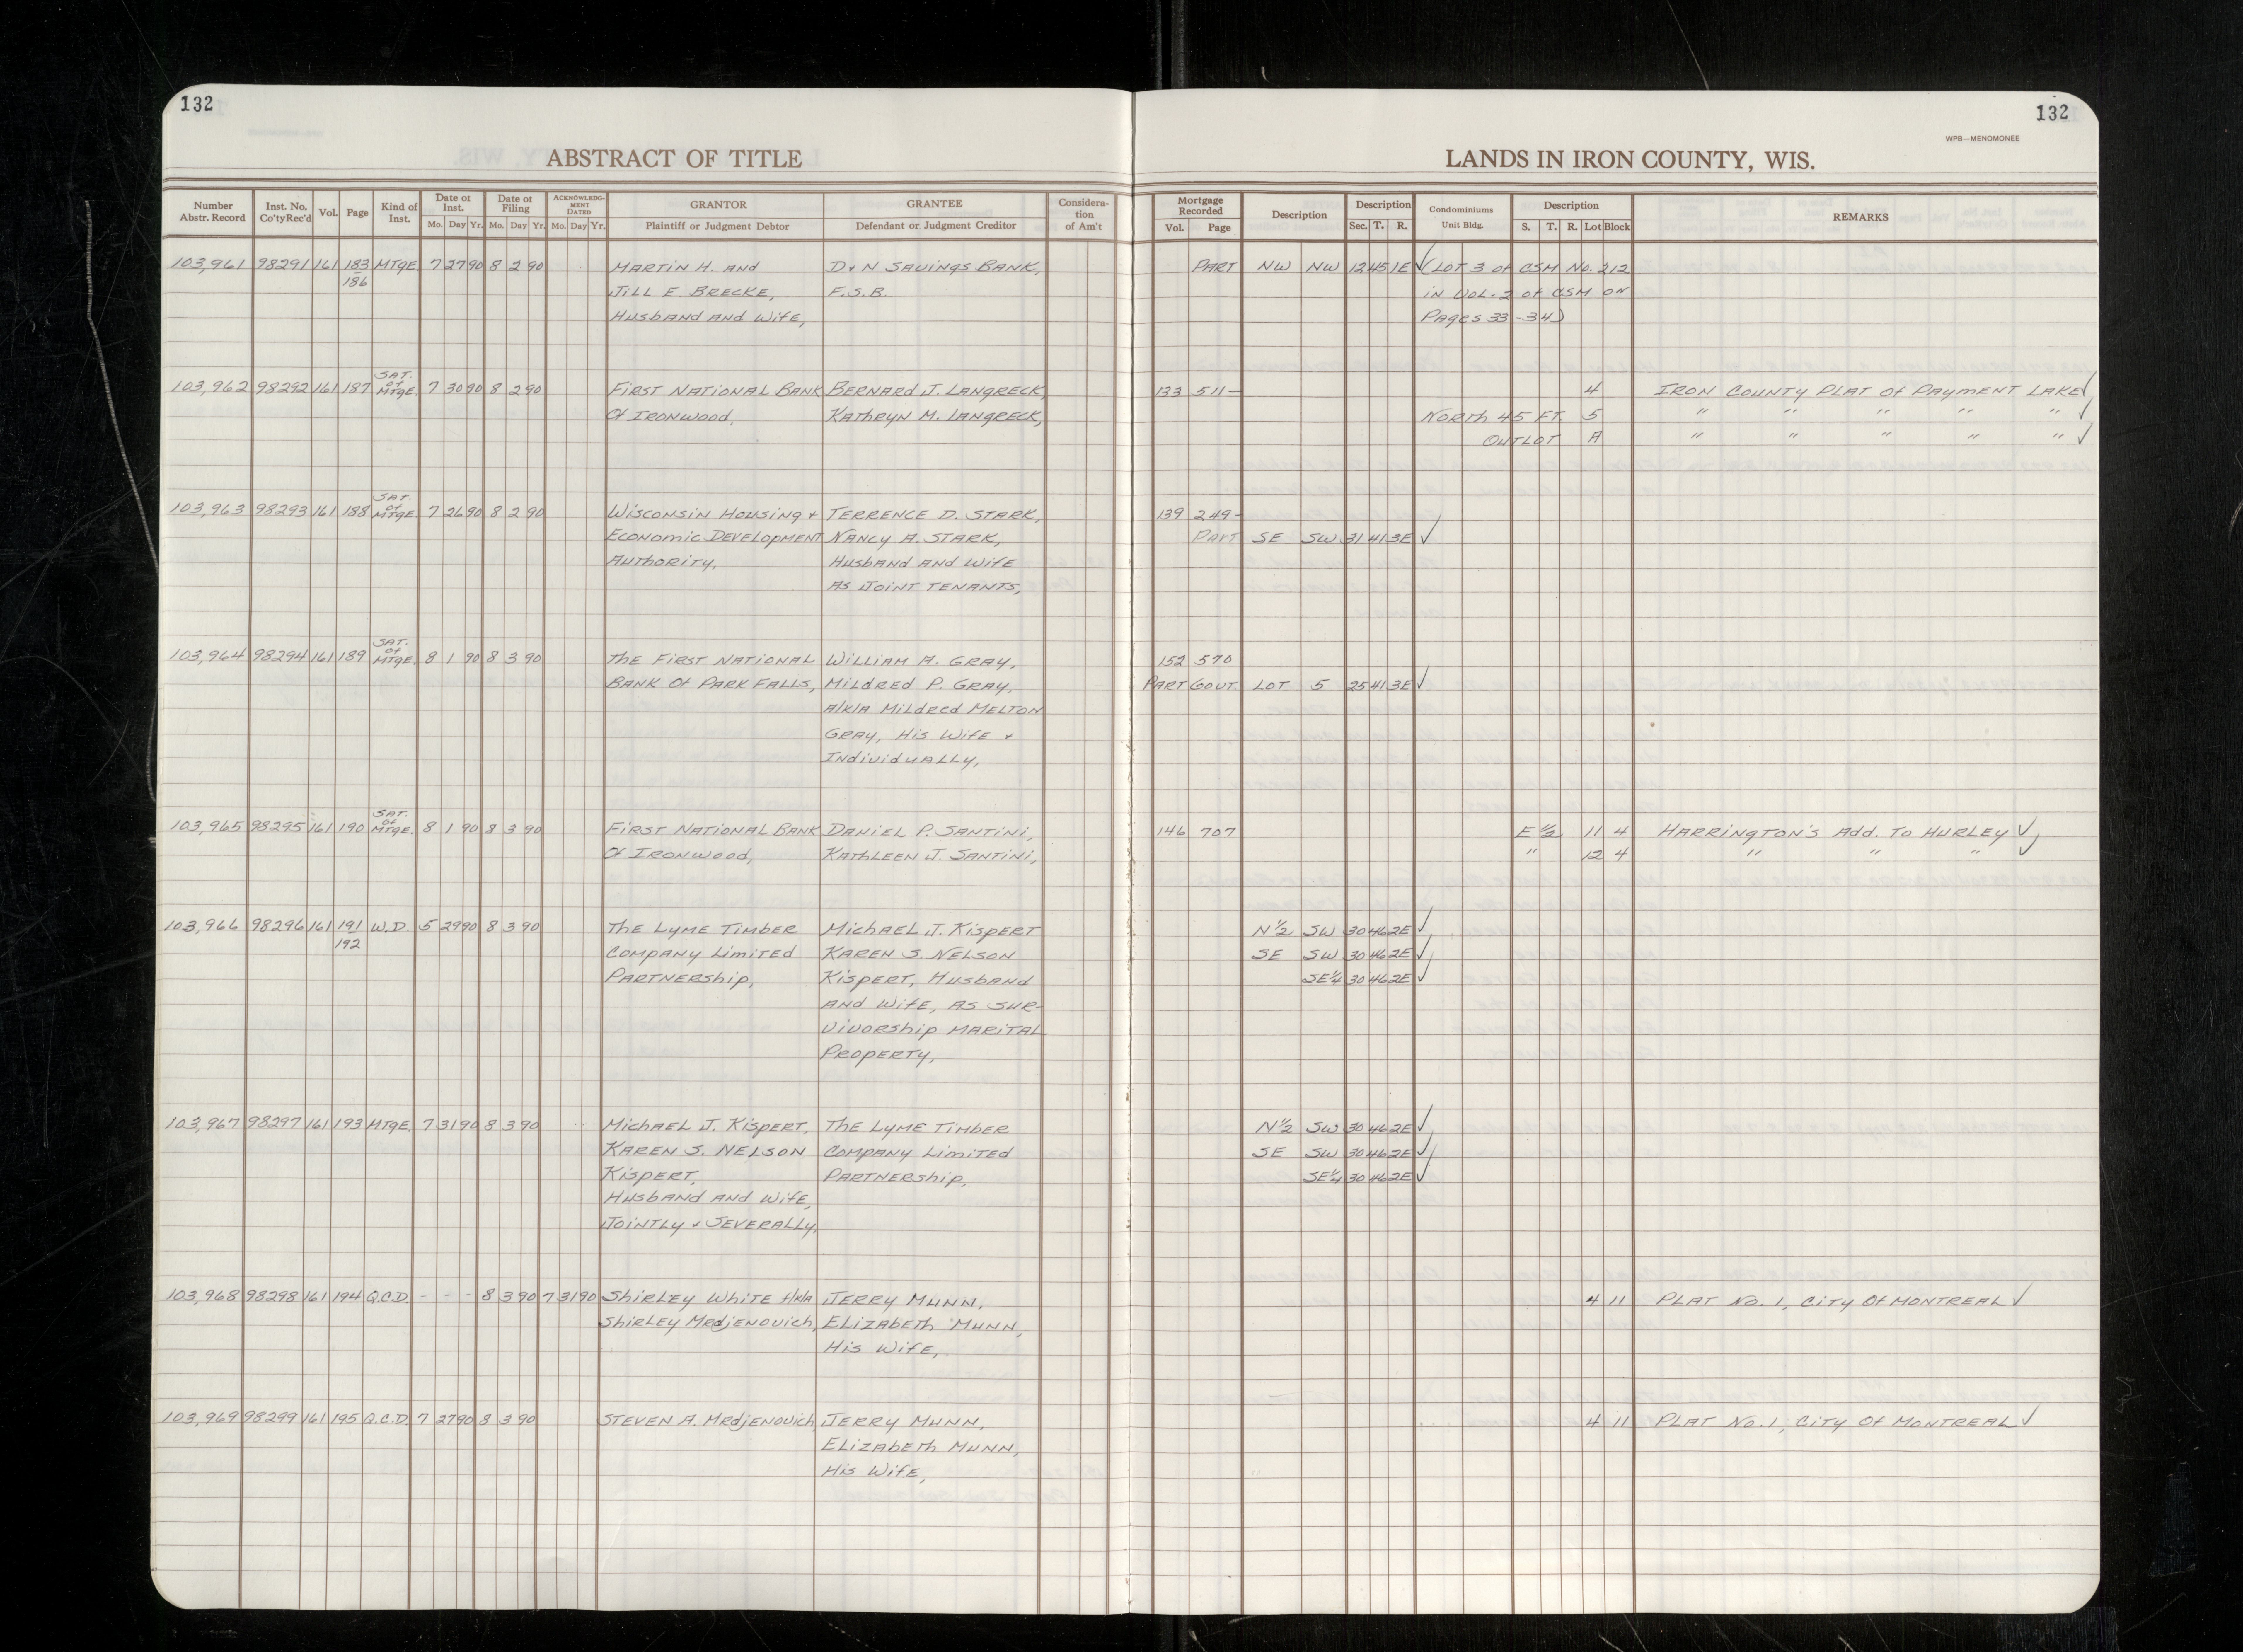 132
132
WPB—MENOMONEE
ABSTRACT OF TITLE
LANDS IN IRON COUNTY, WIS.
Number Abstr. Record | Inst. No. Co'ty Rec'd | Vol. | Page | Kind of Inst. | Date of Inst. Mo. Day Yr. | Date of Filing Mo. Day Yr. | ACKNOWLEDGMENT DATED Mo. Day Yr. | GRANTOR Plaintiff or Judgment Debtor | GRANTEE Defendant or Judgment Creditor | Consideration of Am't | Mortgage Recorded Vol. Page | Description | Description Sec. T. R. | Condominiums Unit Bldg. | Description S. T. R. Lot Block | REMARKS
103,961 98291 161 183 MTGE. 7 27 90 8 2 90 MARTIN H. AND D + N SAVINGS BANK, PART NW NW 12 45 1E ✓ (LOT 3 OF CSM NO. 212
186 JILL E BRECKE, F.S.B. IN VOL. 2 OF CSM ON
HUSBAND AND WIFE, PAGES 33-34)
SAT. OF
103,962 98292 161 187 MTGE. 7 30 90 8 2 90 FIRST NATIONAL BANK BERNARD J. LANGRECK, 133 511- 4 IRON COUNTY PLAT OF PAYMENT LAKE ✓
OF IRONWOOD, KATHRYN M. LANGRECK, NORTH 45 FT. 5 " " " " " ✓
OUTLOT A " " " " " ✓
SAT. OF
103,963 98293 161 188 MTGE. 7 26 90 8 2 90 WISCONSIN HOUSING + TERRENCE D. STARK, 139 249-
ECONOMIC DEVELOPMENT NANCY A. STARK, PART SE SW 31 41 3E ✓
AUTHORITY, HUSBAND AND WIFE
AS JOINT TENANTS,
SAT. OF
103,964 98294 161 189 MTGE. 8 1 90 8 3 90 THE FIRST NATIONAL WILLIAM A. GRAY, 152 570
BANK OF PARK FALLS, MILDRED P. GRAY, PART GOVT. LOT 5 25 41 3E ✓
A/K/A MILDRED MELTON
GRAY, HIS WIFE +
INDIVIDUALLY,
SAT. OF
103,965 98295 161 190 MTGE. 8 1 90 8 3 90 FIRST NATIONAL BANK DANIEL P. SANTINI, 146 707 E 1/2 11 4 HARRINGTON'S ADD. TO HURLEY ✓
OF IRONWOOD, KATHLEEN J. SANTINI, " 12 4 " " " ✓
103,966 98296 161 191 W.D. 5 29 90 8 3 90 THE LYME TIMBER MICHAEL J. KISPERT N 1/2 SW 30 46 2E ✓
192 COMPANY LIMITED KAREN S. NELSON SE SW 30 46 2E ✓
PARTNERSHIP, KISPERT, HUSBAND SE 1/4 30 46 2E ✓
AND WIFE, AS SUR-
VIVORSHIP MARITAL
PROPERTY,
103,967 98297 161 193 MTGE. 7 31 90 8 3 90 MICHAEL J. KISPERT, THE LYME TIMBER N 1/2 SW 30 46 2E ✓
KAREN S. NELSON COMPANY LIMITED SE SW 30 46 2E ✓
KISPERT, PARTNERSHIP, SE 1/4 30 46 2E ✓
HUSBAND AND WIFE,
JOINTLY + SEVERALLY,
103,968 98298 161 194 Q.C.D. - - - 8 3 90 7 31 90 SHIRLEY WHITE f/k/a JERRY MUNN, 4 11 PLAT NO. 1, CITY OF MONTREAL ✓
SHIRLEY MRDJENOVICH, ELIZABETH MUNN,
HIS WIFE,
103,969 98299 161 195 Q.C.D. 7 27 90 8 3 90 STEVEN A. MRDJENOVICH, JERRY MUNN, 4 11 PLAT NO. 1, CITY OF MONTREAL ✓
ELIZABETH MUNN,
HIS WIFE,